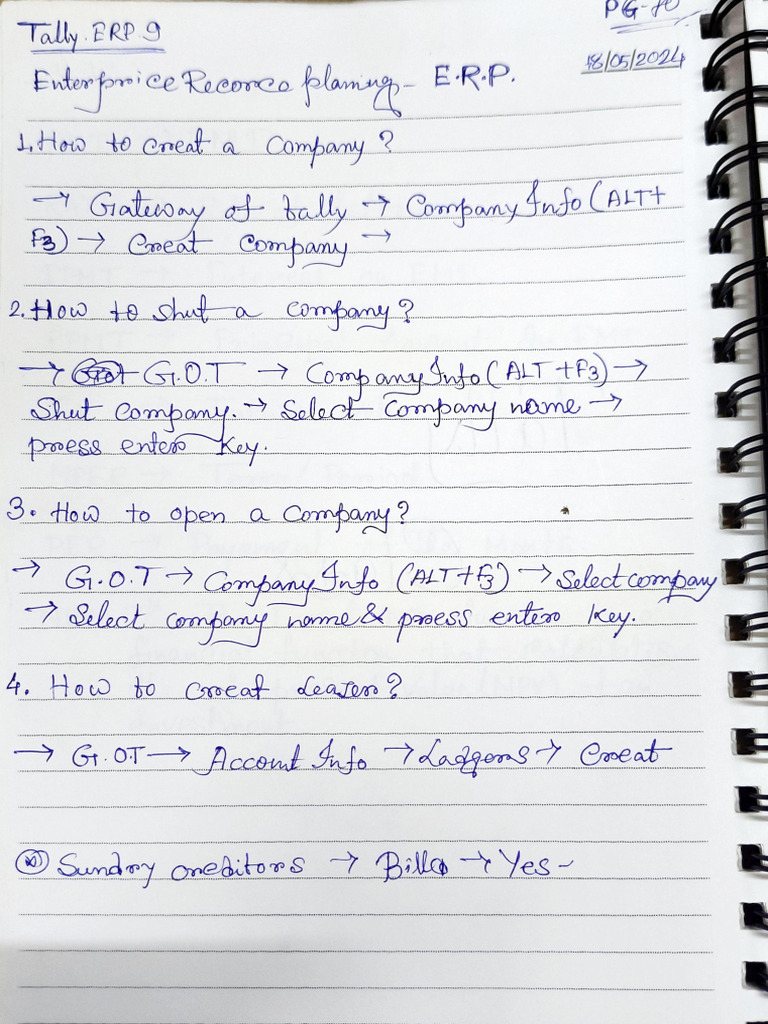 PG-70
Tally.ERP.9
18/05/2024
Enterproice Recorce planning - E.R.P.
1. How to creat a Company?
→ Gateway of tally → Company Info (ALT+
F3) → Creat Company →
2. How to shut a company?
→ G.O.T → Company Info (ALT+F3) →
Shut company. → Select Company name →
press enter key.
3. How to open a Company?
→ G.O.T → Company Info (ALT+F3) → Select company
→ Select company name & press enter key.
4. How to creat Leazer?
→ G.O.T → Account Info → Ladgers → Creat
Sundry creditors → Bills → Yes -